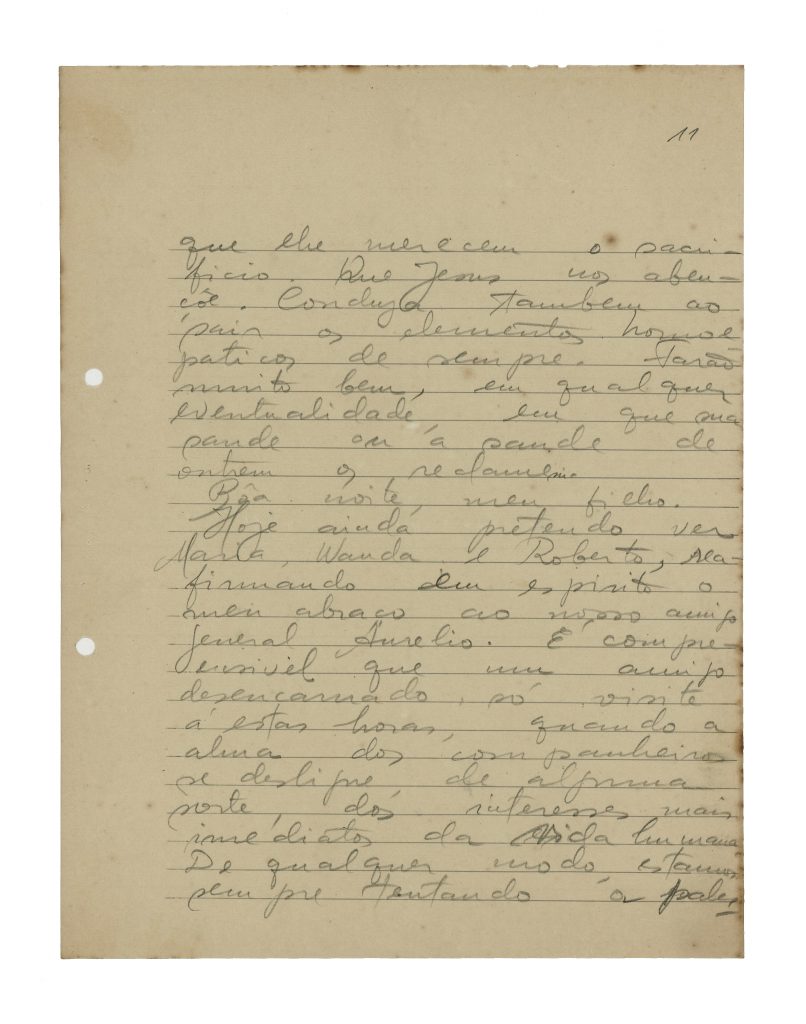 11
que lhe merecem o sacri-
ficio. Que Jesus nos aben-
çôe. Conduza tambem ao
sair os elementos homoe
paticos de sempre. Farão
muito bem, em qualquer
eventualidade, em que sua
saude ou á saude de
outrem os reclame
Bôa noite, meu filho.
Hoje ainda pretendo ver
Maria, Wanda e Roberto, rea-
firmando em espirito o
meu abraço ao nosso amigo
general Aurelio. É compre-
ensivel que um amigo
desencarnado, só visite
á estas horas, quando a
alma dos companheiros
se desligue de alguma
sorte, dos interesses mais
imediatos da vida humana
De qualquer modo, estamos
sempre tentando a pales